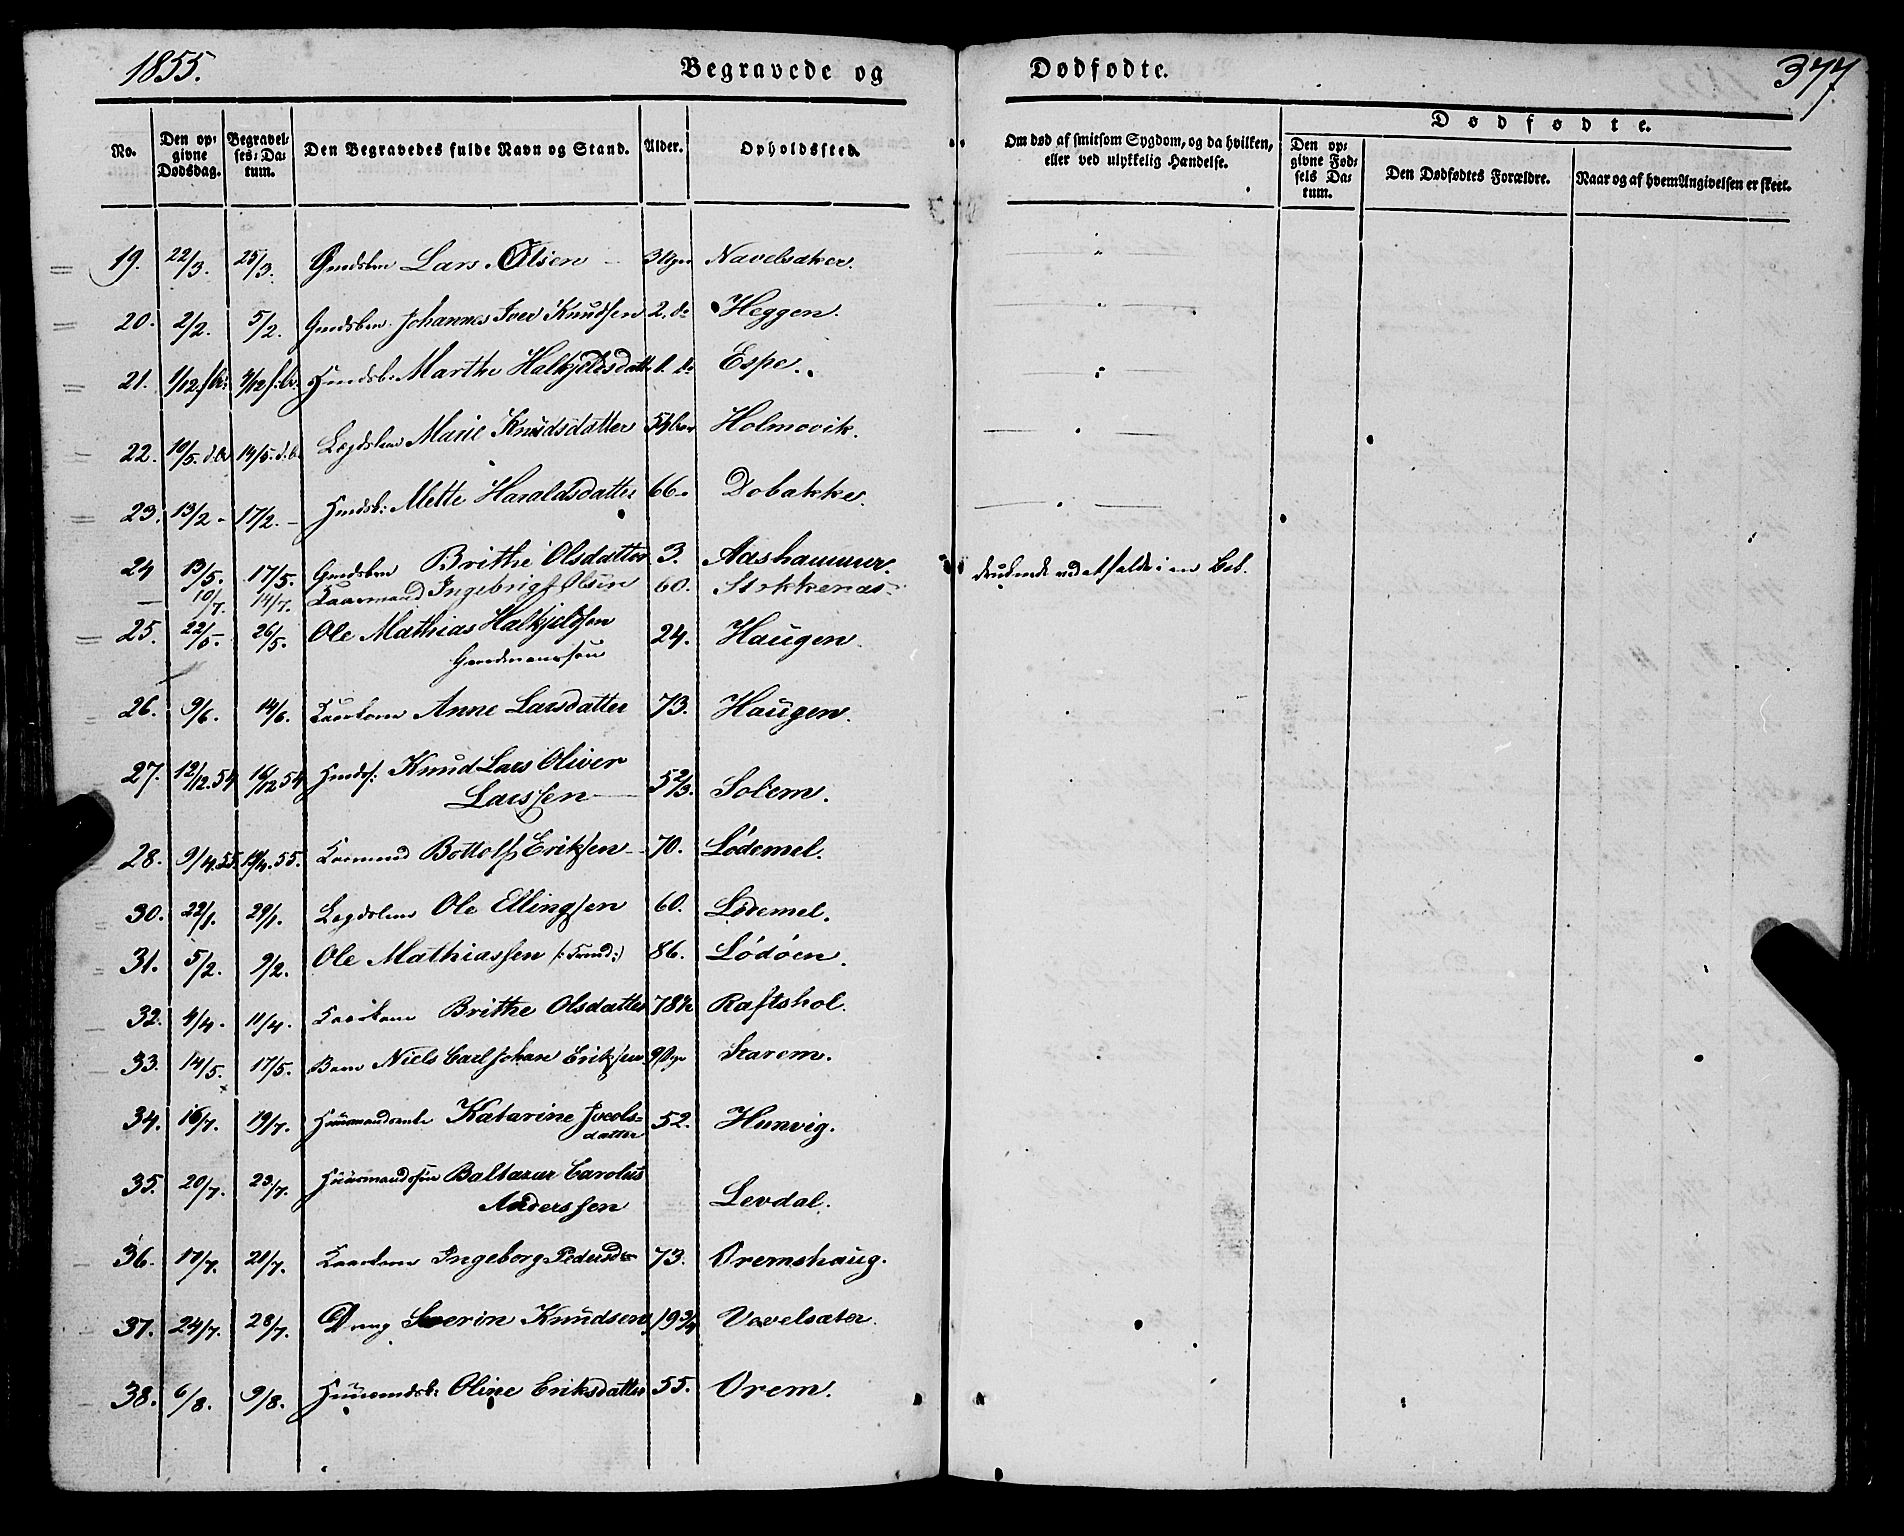 1855. Begravede og Dødfødte. 377
Dødfødte.
No. Den opgivne Dødsdag. Begravelses-Datum. Den Begravedes fulde Navn og Stand. Alder. Opholdssted. Om død af smitsom Sygdom, og da hvilken, eller ved ulykkelig Hændelse. Den opgivne Fødsels Datum. Den Dødfødtes Forældre. Naar og af hvem Angivelsen er skeet.
19. 22/3. 25/3. Lars Olsen Navelsaker.
20. 2/2. 5/2. Johannes Iver Knudsen 2. do Heggen.
21. Marthe Halkjeldsdatter do Espe.
22. 10/5. 14/5. Marie Knudsdatter Holmovik.
23. 13/2 17/2. Mette Haraldsdatter 66 Dobakke.
24 13/5. 17/5. Brithe Olsdatter 3. Aashammer.
— 10/7. 14/7. Kaarmand Ingebrigt Olsen 60. Stokkenæs
25. 22/5 26/5. Ole Mathias Halkjeldsen 24. Haugen.
26. 9/6. 14/6. Anne Larsdatter 73. Haugen.
27. 12/12.54 16/12 54 Knud Lars Oliver
Larssen 5 2/3. Solem.
28. 9/4.55. 14/4.55. Bottolf Eriksen 70. Lødemel.
30. 22/1. 29/1. Ole Ellingsen 60. Lødemel.
31. 5/2. 9/2. Ole Mathiassen 86. Lødøen.
32. 4/4. 11/4. Brithe Olsdatter 78 1/2 Raftshol.
33. 14/5. 17/5. Barn Niels Carl Johan Eriksen Starem.
34. 16/7. 19/7. Huusmandsenke Katarine Jacobs=
datter 52. Hunvig.
35. 20/7. 23/7. Huusmandssøn Baltazar Carolus
Anderssen Levdal.
36. 17/7. 21/7. Ingeborg Pedersdr 73. Oremshaug.
37. 24/7. 28/7. Dreng Severin Knudsen 19 3/4
38. 6/8. 9/8. Oline Eriksdatter 55. Orem.